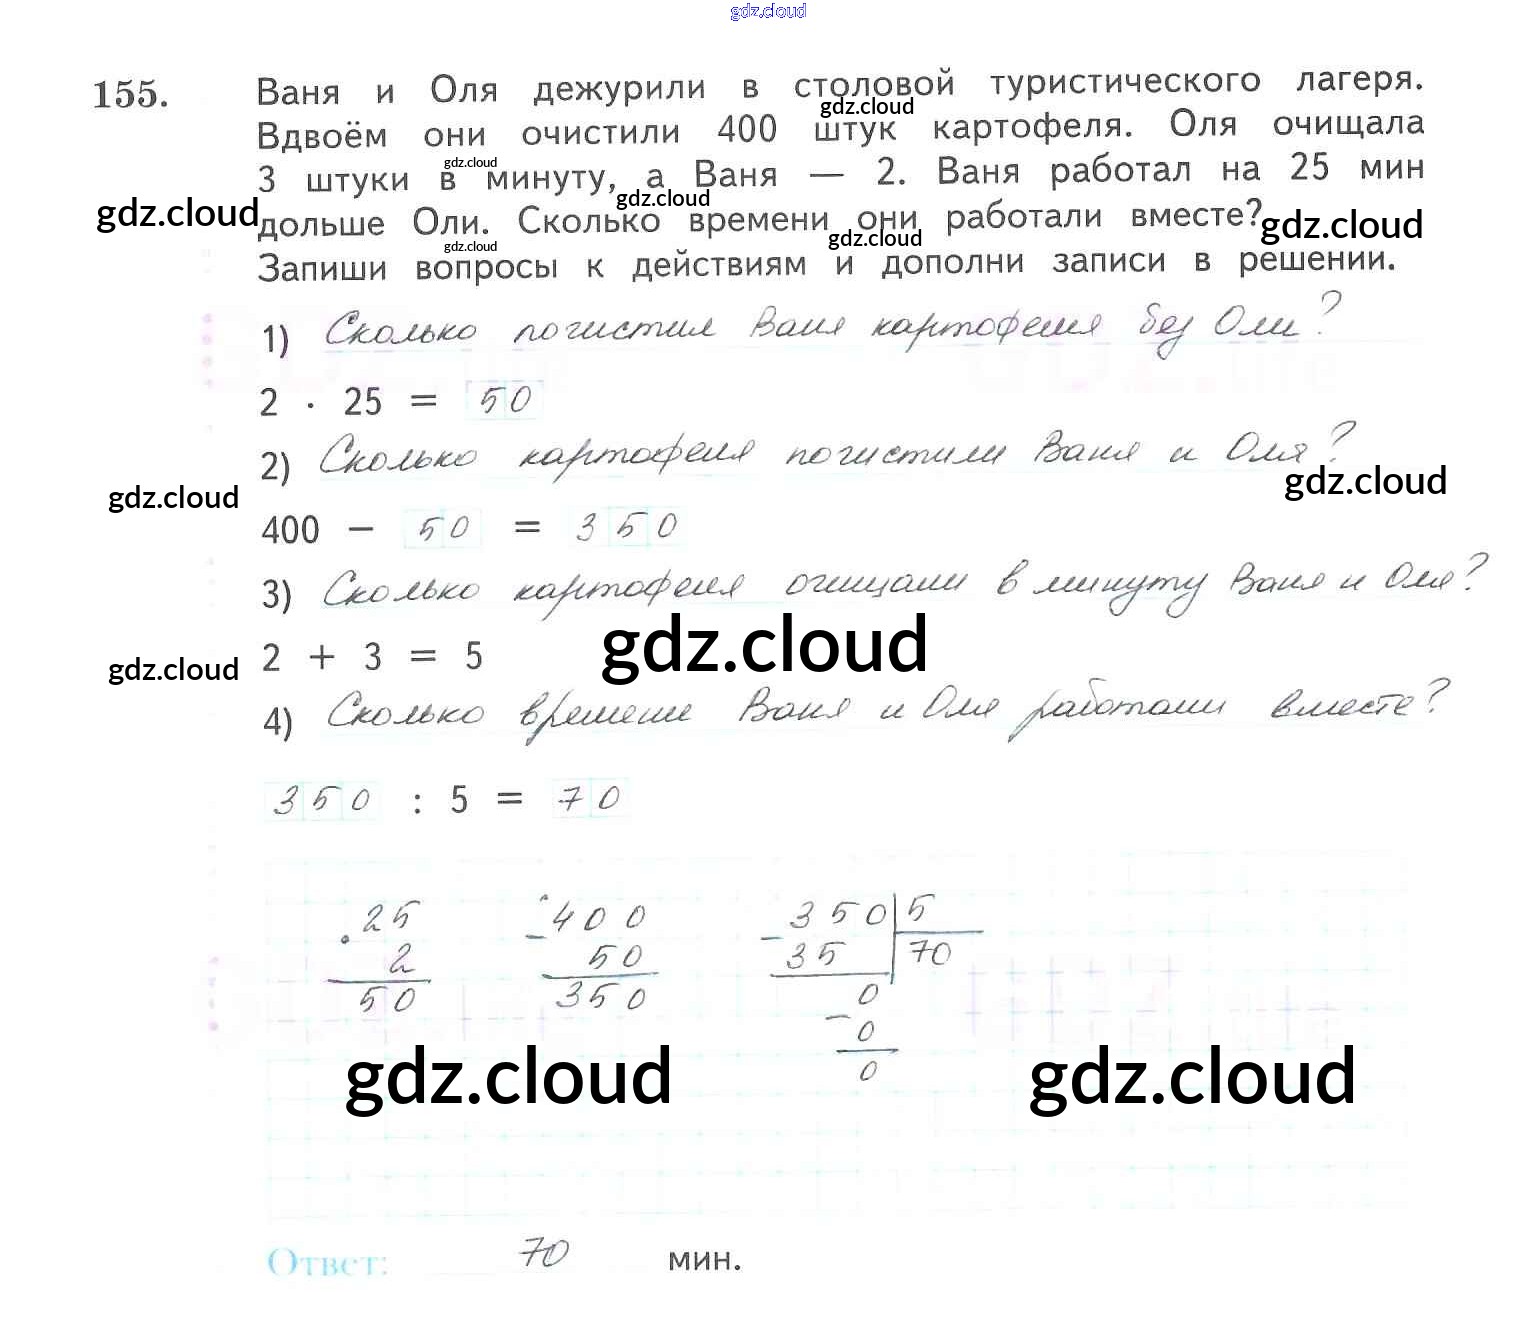 gdz.cloud
155. Ваня и Оля дежурили в столовой туристического лагеря.
gdz.cloud
Вдвоём они очистили 400 штук картофеля. Оля очищала
gdz.cloud
3 штуки в минуту, а Ваня — 2. Ваня работал на 25 мин
gdz.cloud gdz.cloud
дольше Оли. Сколько времени они работали вместе?
gdz.cloud gdz.cloud gdz.cloud
Запиши вопросы к действиям и дополни записи в решении.
1) Сколько почистил Ваня картофеля без Оли?
2 · 25 = 50
2) Сколько картофеля почистили Ваня и Оля?
gdz.cloud gdz.cloud
400 − 50 = 350
3) Сколько картофеля очищали в минуту Ваня и Оля?
gdz.cloud
2 + 3 = 5
gdz.cloud
4) Сколько времени Ваня и Оля работали вместе?
350 : 5 = 70
25 400 350 5
· 2 − 50 − 35 70
50 350 0
− 0
0
gdz.cloud gdz.cloud
Ответ: 70 мин.